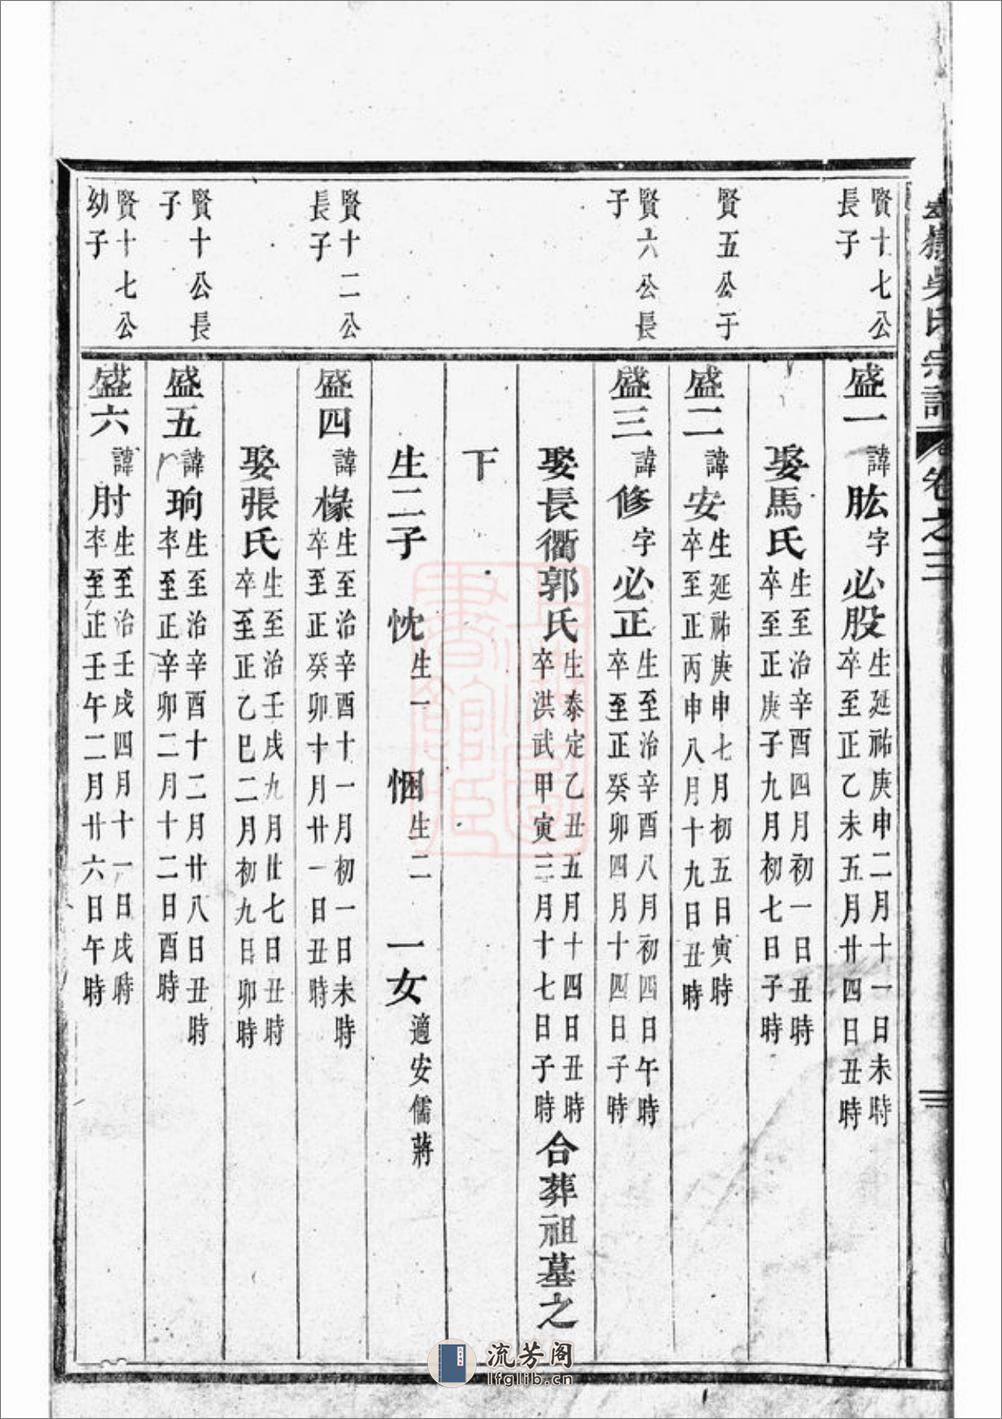 吳氏宗譜 卷之三
賢十七公
長子
盛一諱肱字必股生延祐庚申二月十一日未時
卒至正乙未五月廿四日丑時
娶馬氏生至治辛酉四月初一日丑時
卒至正庚子九月初七日子時
賢五公于
盛二諱安生延祐庚申七月初五日寅時
卒至正丙申八月十九日丑時
賢六公長
子
盛三諱修字必正生至治辛酉八月初四日午時
卒至正癸卯四月十四日子時
娶長衢郭氏生泰定乙丑五月十四日丑時
卒洪武甲寅三月十七日子時合葬祖墓之
下
生二子 忱生一 悃生二 一女適安儒蔣
賢十二公
長子
盛四諱椽生至治辛酉十一月初一日未時
卒至正癸卯十月廿一日丑時
娶張氏生至治壬戌九月廿七日丑時
卒至正乙巳二月初九日卯時
賢十公長
子
盛五諱珦生至治辛酉十二月廿八日丑時
卒至正辛卯二月十二日酉時
賢十七公
幼子
盛六諱肘生至治壬戌四月十一日戌時
卒至正壬午二月廿六日午時
二
流芳阁
lfglib.cn